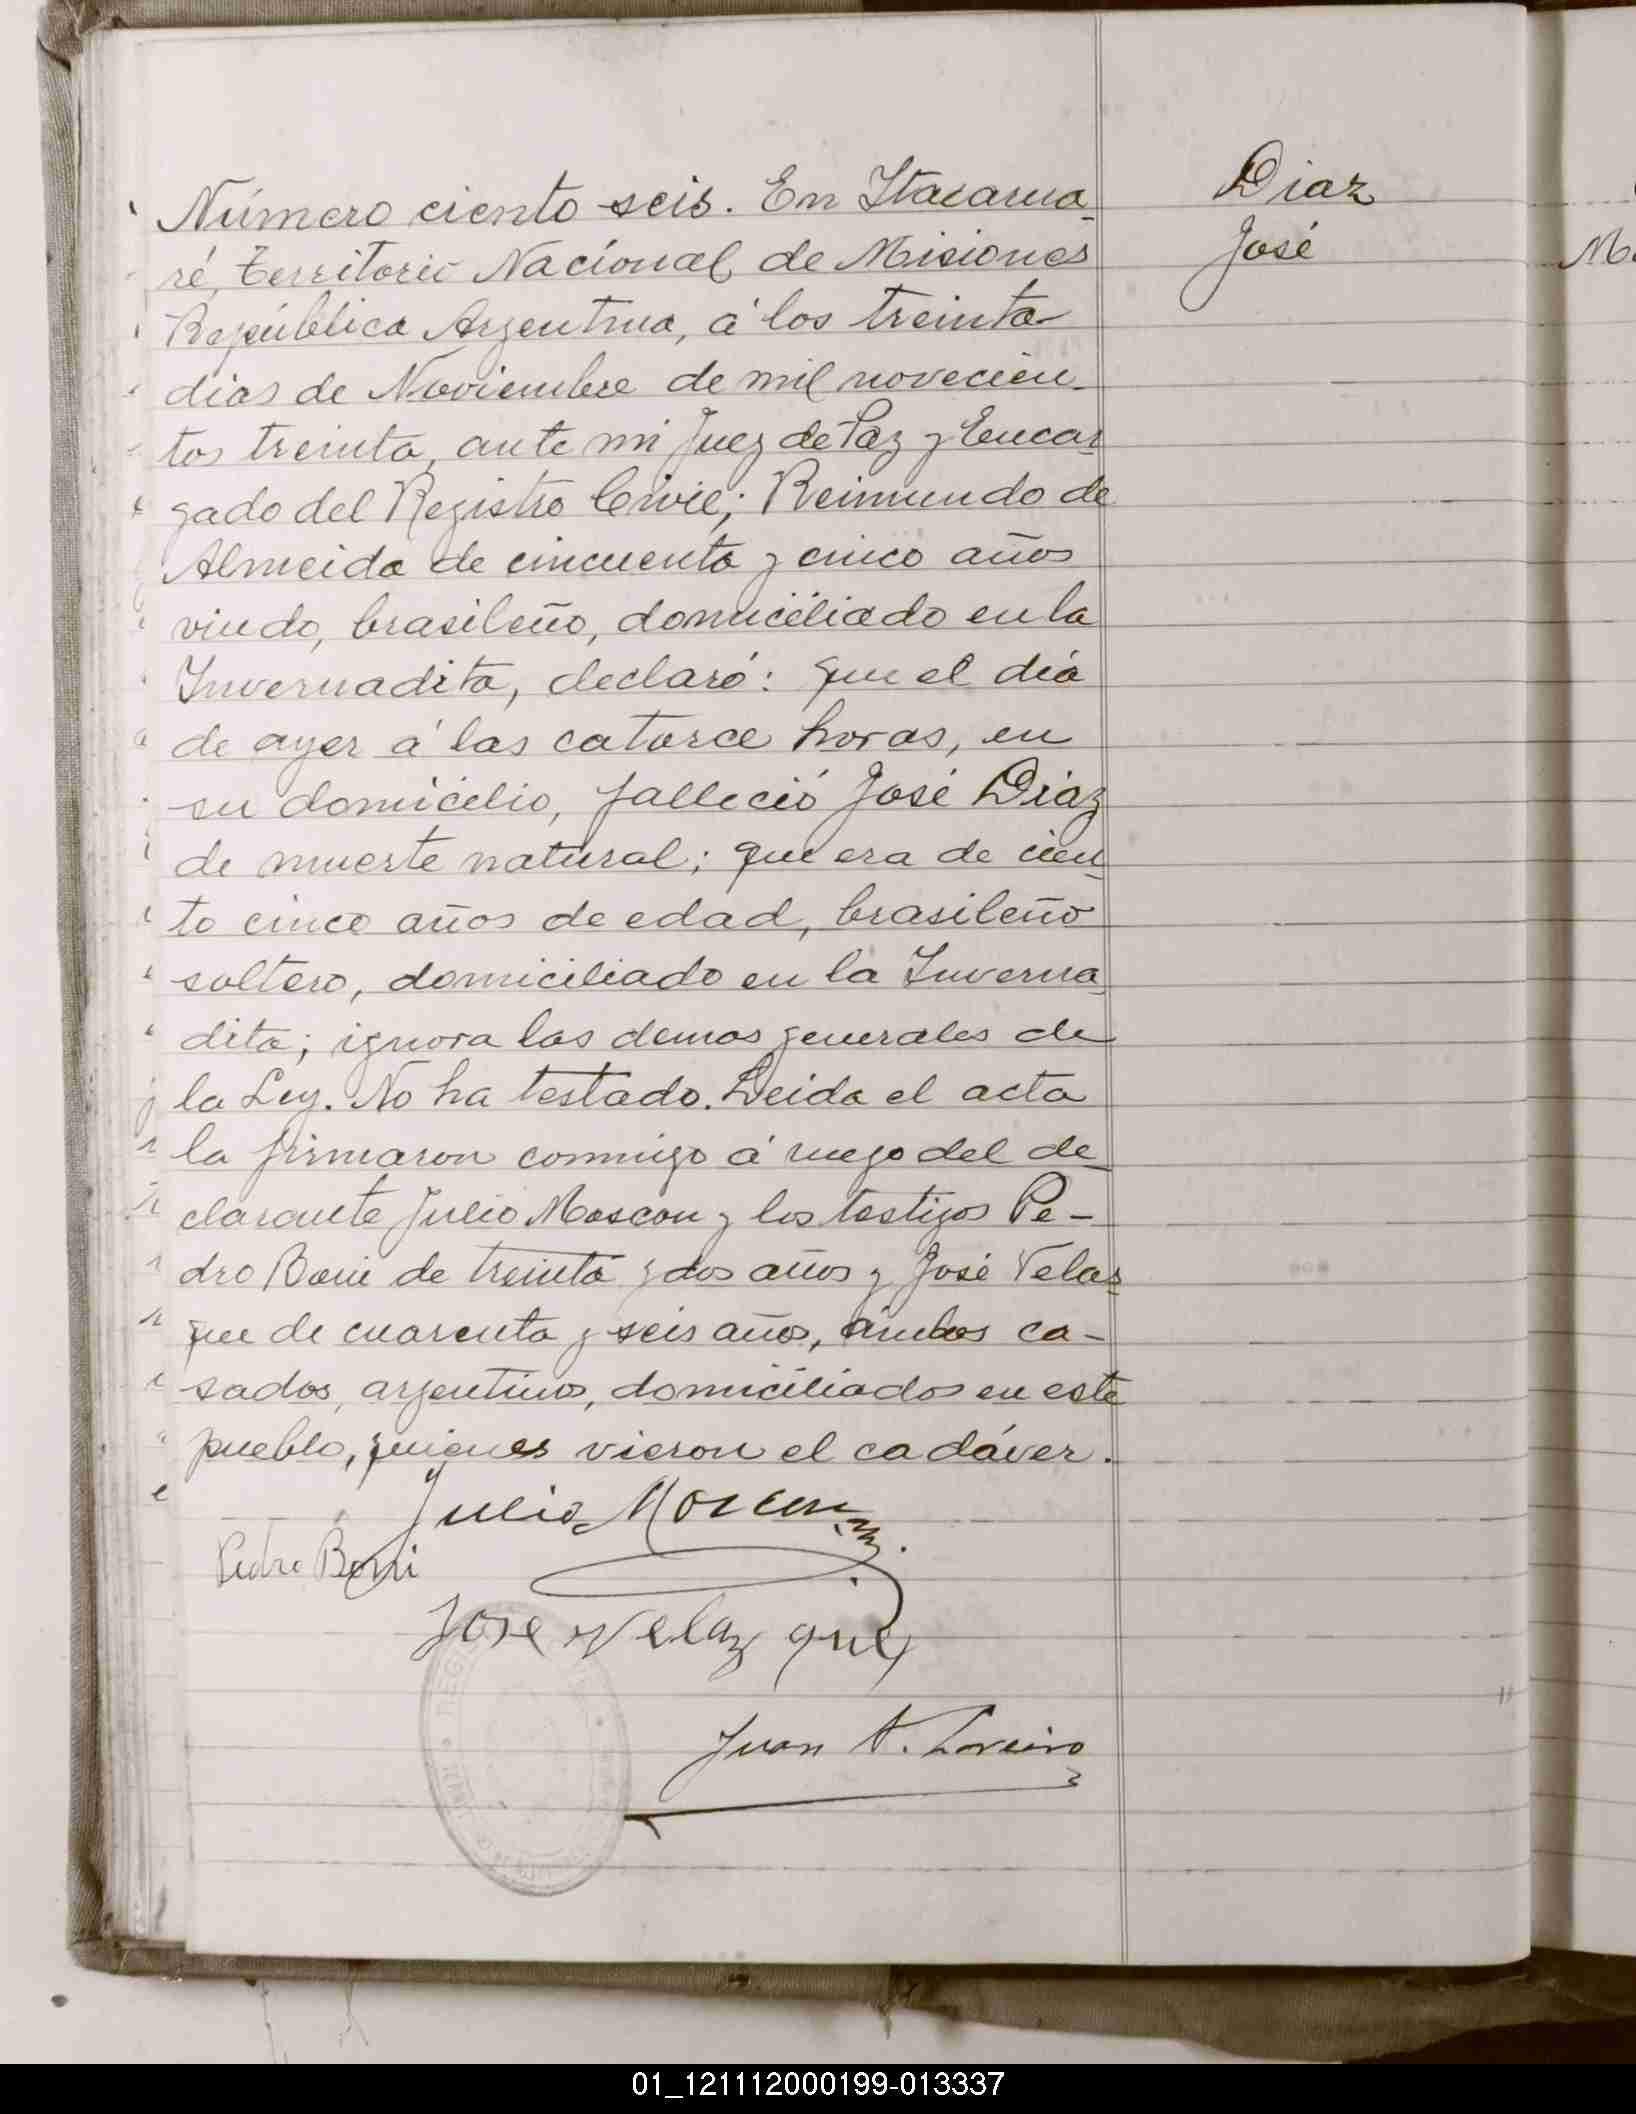 Diaz
José
Número ciento seis. En Itacarua-
ré, Territorio Nacional de Misiones
República Argentina, á los treinta
dias de Noviembre de mil novecien-
tos treinta, ante mi Juez de Paz y Encar-
gado del Registro Civil; Reimundo de
Almeida de cincuenta y cinco años
viudo, brasileño, domiciliado en la
Invernadita, declaró: que el día
de ayer á las catorce horas, en
su domicilio, falleció José Diaz
de muerte natural; que era de cien-
to cinco años de edad, brasileño
soltero, domiciliado en la Inverna-
dita; ignora las demas generales de
la Ley. No ha testado. Leida el acta
la firmaron conmigo á ruego del de-
clarante Julio Moscon y los testigos Pe-
dro Boni de treinta y dos años y José Velas-
que de cuarenta y seis años, ambos ca-
sados, argentinos, domiciliados en este
pueblo, quienes vieron el cadáver.
Julio Moscon
Pedro Boni
Jose Velazque
Juan A. Loreiro
M
01_121112000199-013337